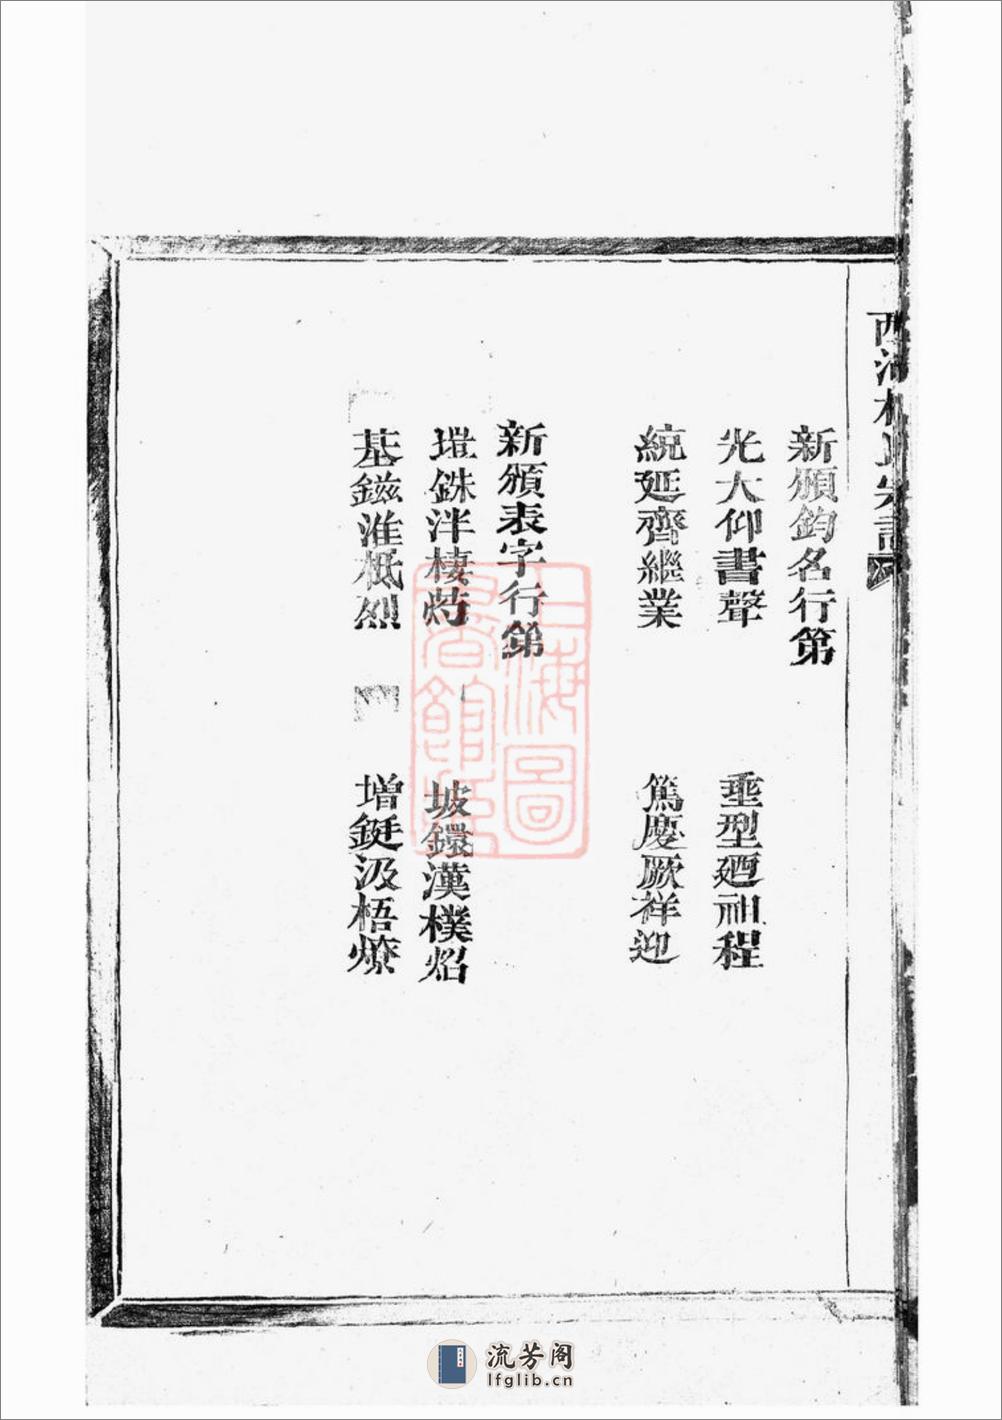 西河林氏宗譜
新頒鈞名行第
光大仰書聲 垂型廼祖程
統延齊繼業 篤慶厥祥迎
新頒表字行第
銖泮棲 坡鐶漢樸焰
基鎡淮柢烈 增鋌汲梧燎
上海圖書館藏
流芳阁
lfglib.cn